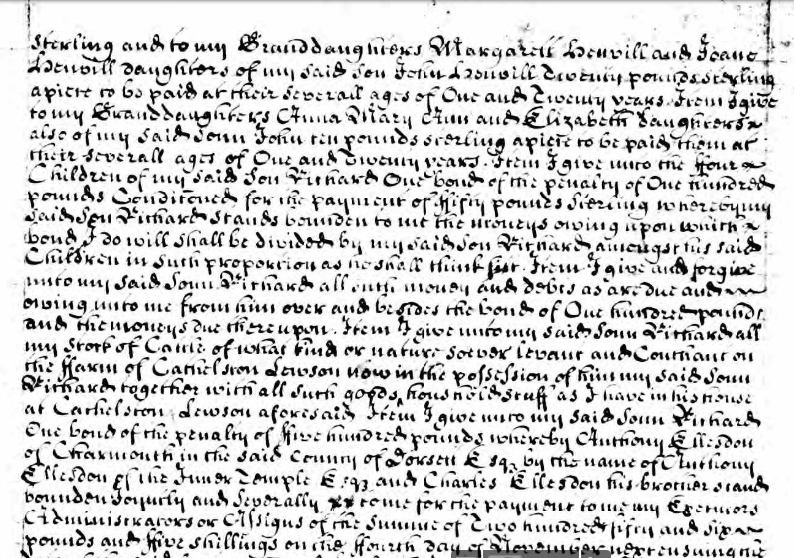 Sterling and to my Granddaughters Margarett Henvill and Joane
Henvill daughters of my said Son John Henvill Twenty pounds sterling
apiece to be paid at their severall ages of One and Twenty years. Item I give
to my Granddaughters Anna Mary Ann and Elizabeth daughters
also of my said Sonn John ten pounds sterling apiece to be paid them at
their severall ages of One and Twenty years. Item I give unto the ffour
Children of my said Son Richard One bond of the penalty of One hundred
pounds Conditoned for the payment of fifty pounds sterling whereby my
said Son Richard stands bounden to me the moneys owing upon which
bond I do will shall be divided by my said Son Richard amongst his said
Children in such proportion as he shall think fitt. Item I give and forgive
unto my said Sonn Richard all such money and debts as are due and
owing unto me from him over and besides the bond of One hundred pounds
and the moneys due thereupon. Item I give unto my said Sonn Richard all
my Stock of Cattle of what kind or nature soever levant and Couchant on
the ffarm of Cathelston Lewson now in the possession of him my said Sonn
Richard together with all such goods, household stuff as I have in his house
at Cathelston Lewson aforesaid Item I give unto my said Sonn Richard
One bond of the penalty of ffive hundred pounds whereby Anthony Ellesdon
of Charmouth in the said County of Dorsett Esqr by the name of Anthony
Ellesdon of the Inner Temple Esqr and Charles Ellesdon his brother stand
bounden joyntly and severally to me for the payment to me my Executors
Administrators or Assigns of the Summe of Two hundred fifty and six
pounds and ffive shillings on the ffourth day of November next ensuing the